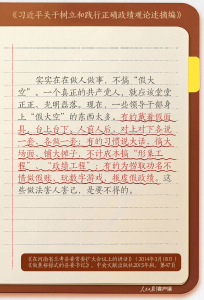 《习近平关于树立和践行正确政绩观论述摘编》
实实在在做人做事，不搞“假大
空”。一个真正的共产党人，就应该堂堂
正正、光明磊落。现在，一些领导干部身
上“假大空”的东西太多，有的戴着假面
具，台上台下、人前人后、对上对下各说
一套、各做一套；有的习惯说大话，搞大
场面、铺大摊子，不计成本搞“形象工
程”、“政绩工程”；有的为捞取功名不
惜做假账、玩数字游戏、报虚假政绩。这
些做法害人害己，是要不得的。
《在河南省兰考县委常委扩大会议上的讲话》（2014年3月18日）
《做焦裕禄式的县委书记》，中央文献出版社2015年版，第47页
人民日报客户端